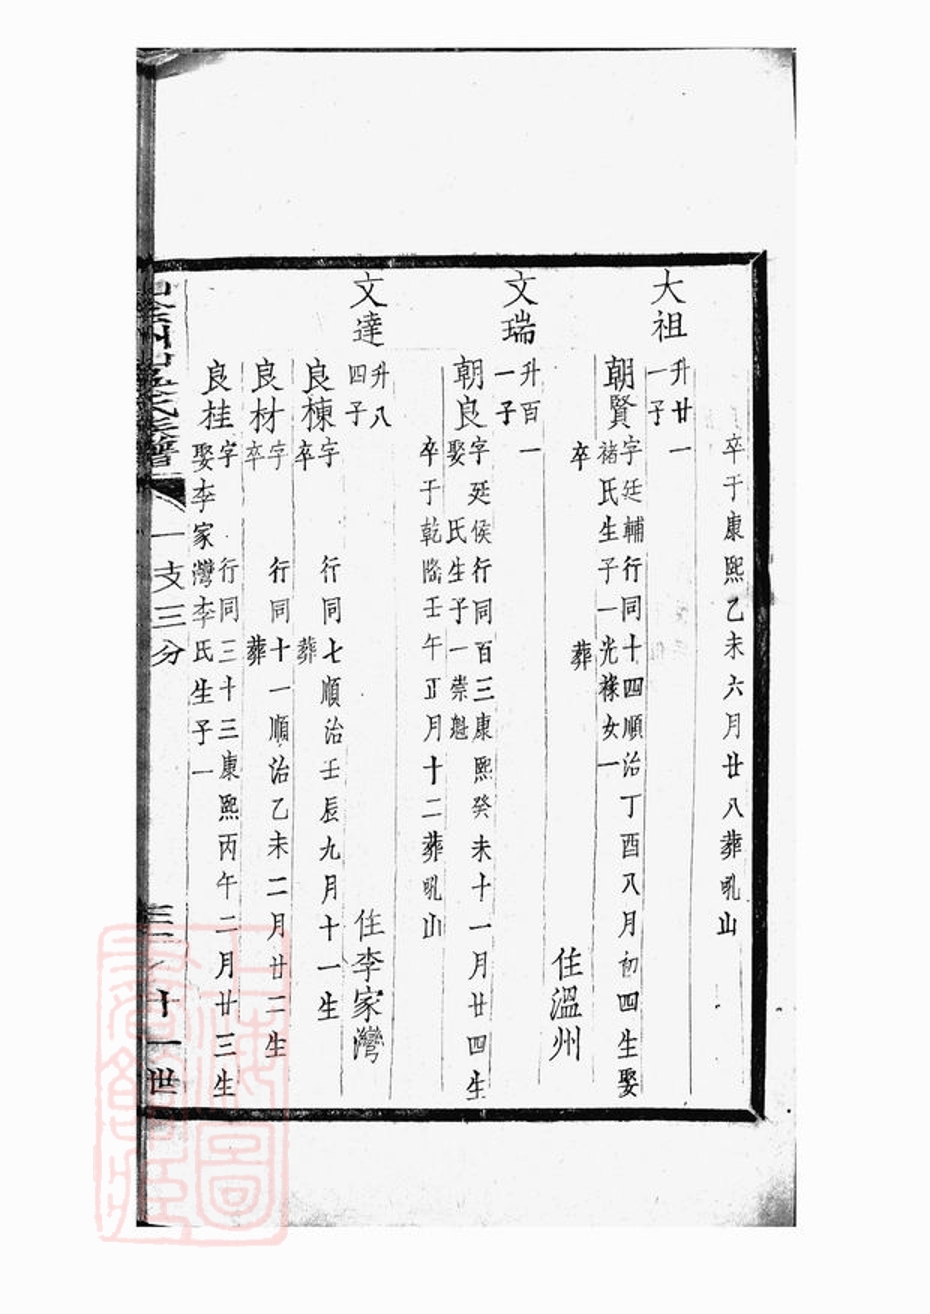 卒于康熙乙未六月廿八葬吼山
大祖
升廿一
一子
朝賢
字廷輔行同十四順治丁酉八月初四生娶
褚氏生子一光祿女一
卒 葬
住溫州
文瑞
升百一
一子
朝良
字廷侯行同百三康熙癸未十一月廿四生
娶 氏生子一崇魁
卒于乾隆壬午正月十二葬吼山
文達
升八
四子
住李家灣
良棟
字 行同七順治壬辰九月十一生
卒 葬
良材
字 行同十一順治乙未二月廿二生
卒 葬
良桂
字 行同三十三康熙丙午二月廿三生
娶李家灣李氏生子一
氏族譜
一支三分
十一世